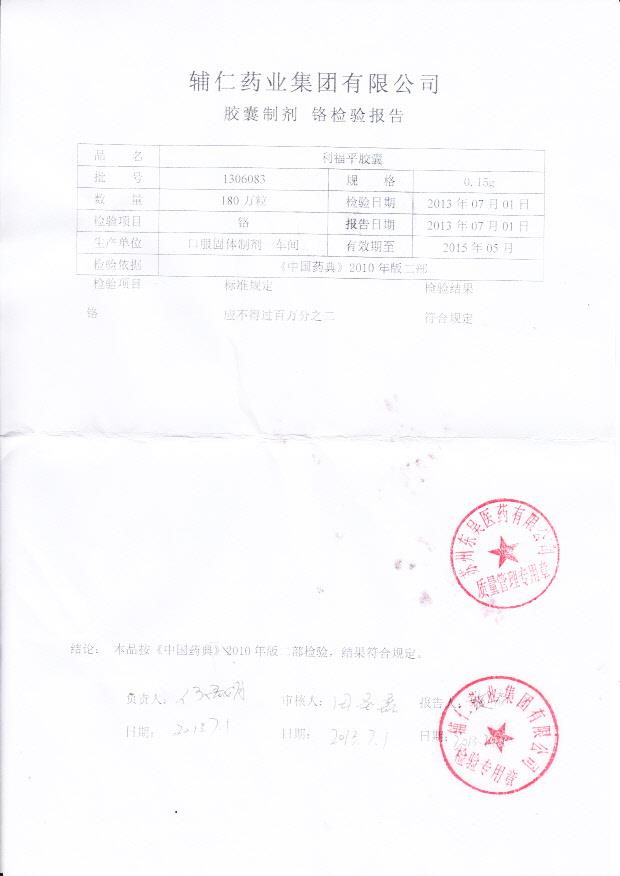 辅仁药业集团有限公司
胶囊制剂 铬检验报告
品 名 利福平胶囊
批 号 1306083 规 格 0.15g
数 量 180万粒 检验日期 2013年07月01日
检验项目 铬 报告日期 2013年07月01日
生产单位 口服固体制剂一车间 有效期至 2015年05月
检验依据 《中国药典》2010年版二部
检验项目 标准规定 检验结果
铬 应不得过百万分之二 符合规定
苏州东吴医药有限公司
质量管理专用章
结论: 本品按《中国药典》2010年版二部检验,结果符合规定。
负责人: 审核人: 报告人:
日期: 2013.7.1 日期: 2013.7.1 日期: 2013.
辅仁药业集团有限公司
检验专用章